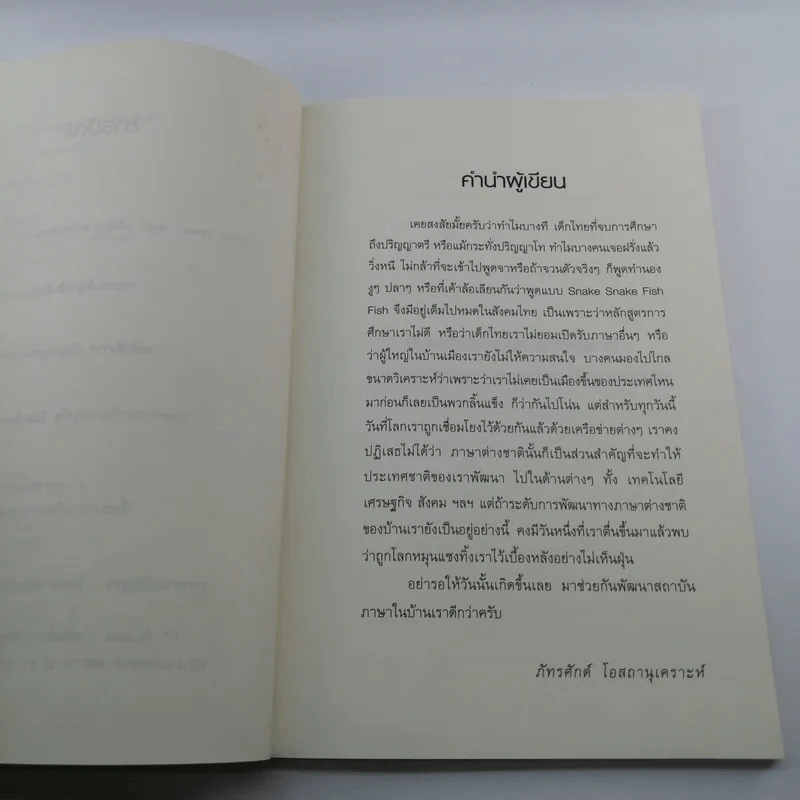 คำนำผู้เขียน
เคยสงสัยมั้ยครับว่าทำไมบางที เด็กไทยที่จบการศึกษา
ถึงปริญญาตรี หรือแม้กระทั่งปริญญาโท ทำไมบางคนเจอฝรั่งแล้ว
วิ่งหนี ไม่กล้าที่จะเข้าไปพูดจาหรือถ้าจวนตัวจริงๆ ก็พูดทำนอง
งูๆ ปลาๆ หรือที่เค้าล้อเลียนกันว่าพูดแบบ Snake Snake Fish
Fish จึงมีอยู่เต็มไปหมดในสังคมไทย เป็นเพราะว่าหลักสูตรการ
ศึกษาเราไม่ดี หรือว่าเด็กไทยเราไม่ยอมเปิดรับภาษาอื่นๆ หรือ
ว่าผู้ใหญ่ในบ้านเมืองเรายังไม่ให้ความสนใจ บางคนมองไปไกล
ขนาดวิเคราะห์ว่าเพราะว่าเราไม่เคยเป็นเมืองขึ้นของประเทศไหน
มาก่อนก็เลยเป็นพวกลิ้นแข็ง ก็ว่ากันไปโน่น แต่สำหรับทุกวันนี้
วันที่โลกเราถูกเชื่อมโยงไว้ด้วยกันแล้วด้วยเครือข่ายต่างๆ เราคง
ปฏิเสธไม่ได้ว่า ภาษาต่างชาตินั้นก็เป็นส่วนสำคัญที่จะทำให้
ประเทศชาติของเราพัฒนา ไปในด้านต่างๆ ทั้ง เทคโนโลยี
เศรษฐกิจ สังคม ฯลฯ แต่ถ้าระดับการพัฒนาทางภาษาต่างชาติ
ของบ้านเรายังเป็นอยู่อย่างนี้ คงมีวันหนึ่งที่เราตื่นขึ้นมาแล้วพบ
ว่าถูกโลกหมุนแซงทิ้งเราไว้เบื้องหลังอย่างไม่เห็นฝุ่น
อย่ารอให้วันนั้นเกิดขึ้นเลย มาช่วยกันพัฒนาสถาบัน
ภาษาในบ้านเราดีกว่าครับ
ภัทรศักด์ โอสถานุเคราะห์